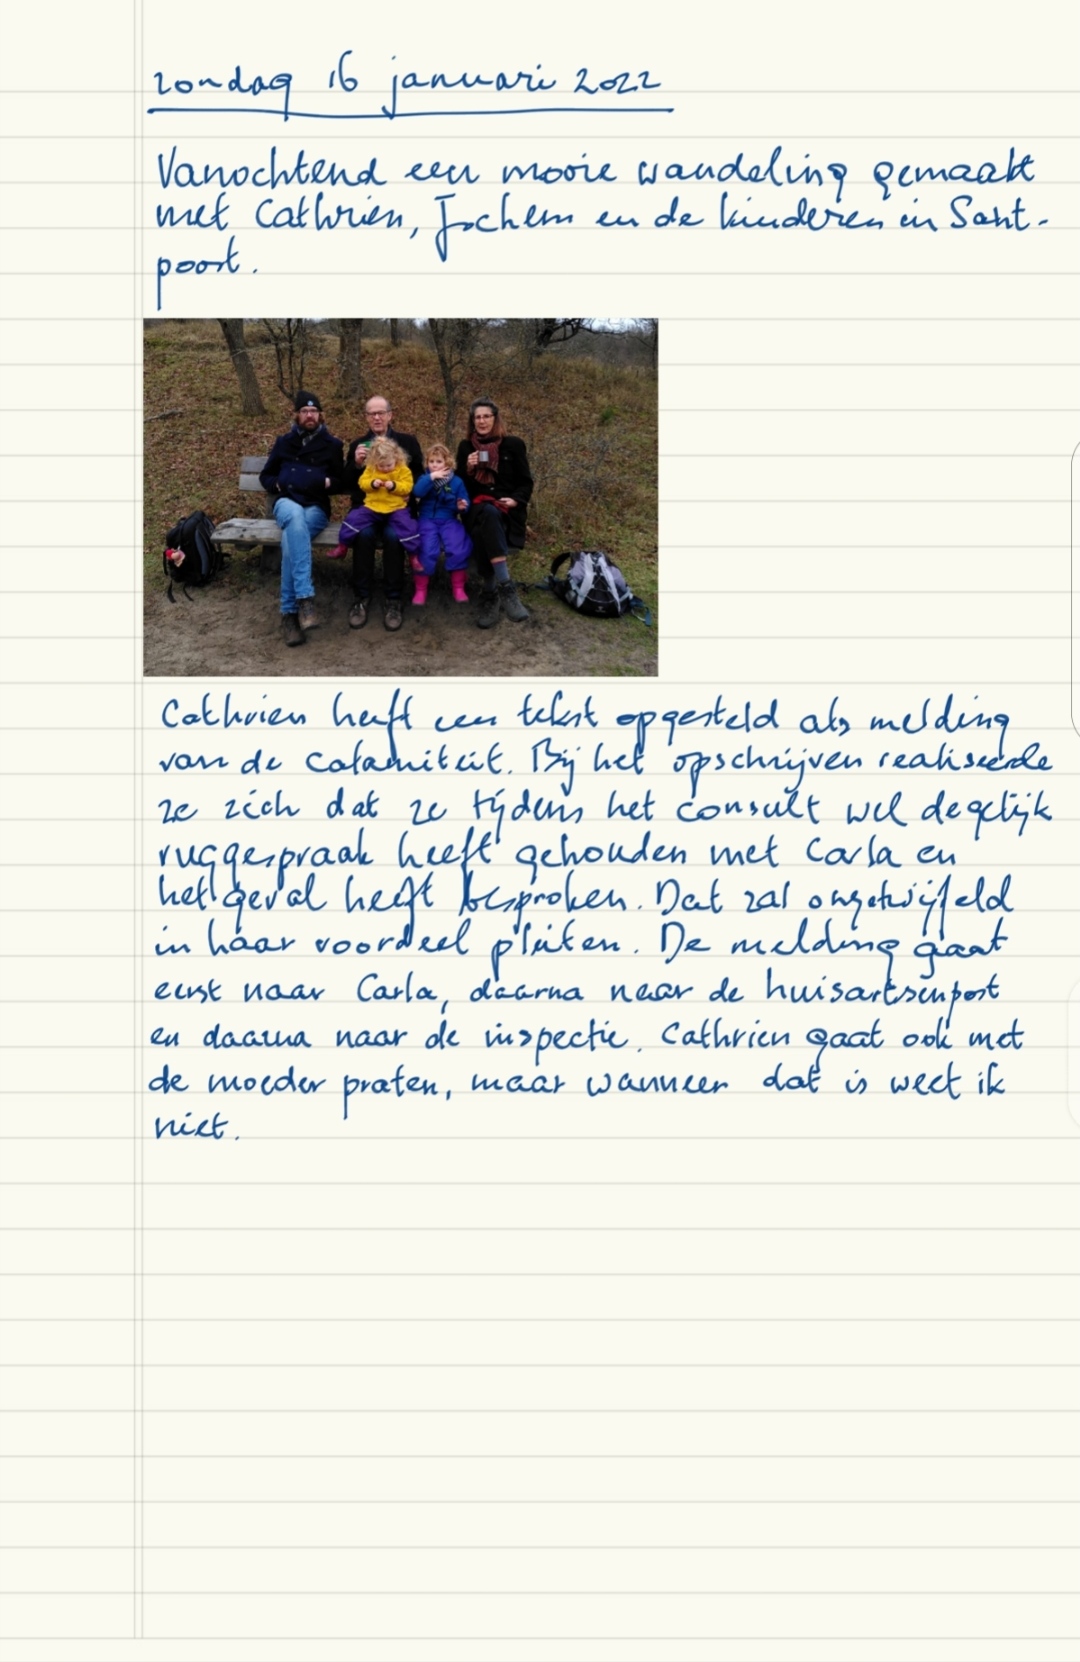 zondag 16 januari 2022
Vanochtend een mooie wandeling gemaakt
met Cathrien, Jochem en de kinderen in Sant-
poort.
Cathrien heeft een tekst opgesteld als melding
van de calamiteit. Bij het opschrijven realiseerde
ze zich dat ze tijdens het consult wel degelijk
ruggespraak heeft gehouden met Carla en
het geval heeft besproken. Dat zal ongetwijfeld
in haar voordeel pleiten. De melding gaat
eerst naar Carla, daarna naar de huisartsenpost
en daarna naar de inspectie. Cathrien gaat ook met
de moeder praten, maar wanneer dat is weet ik
niet.